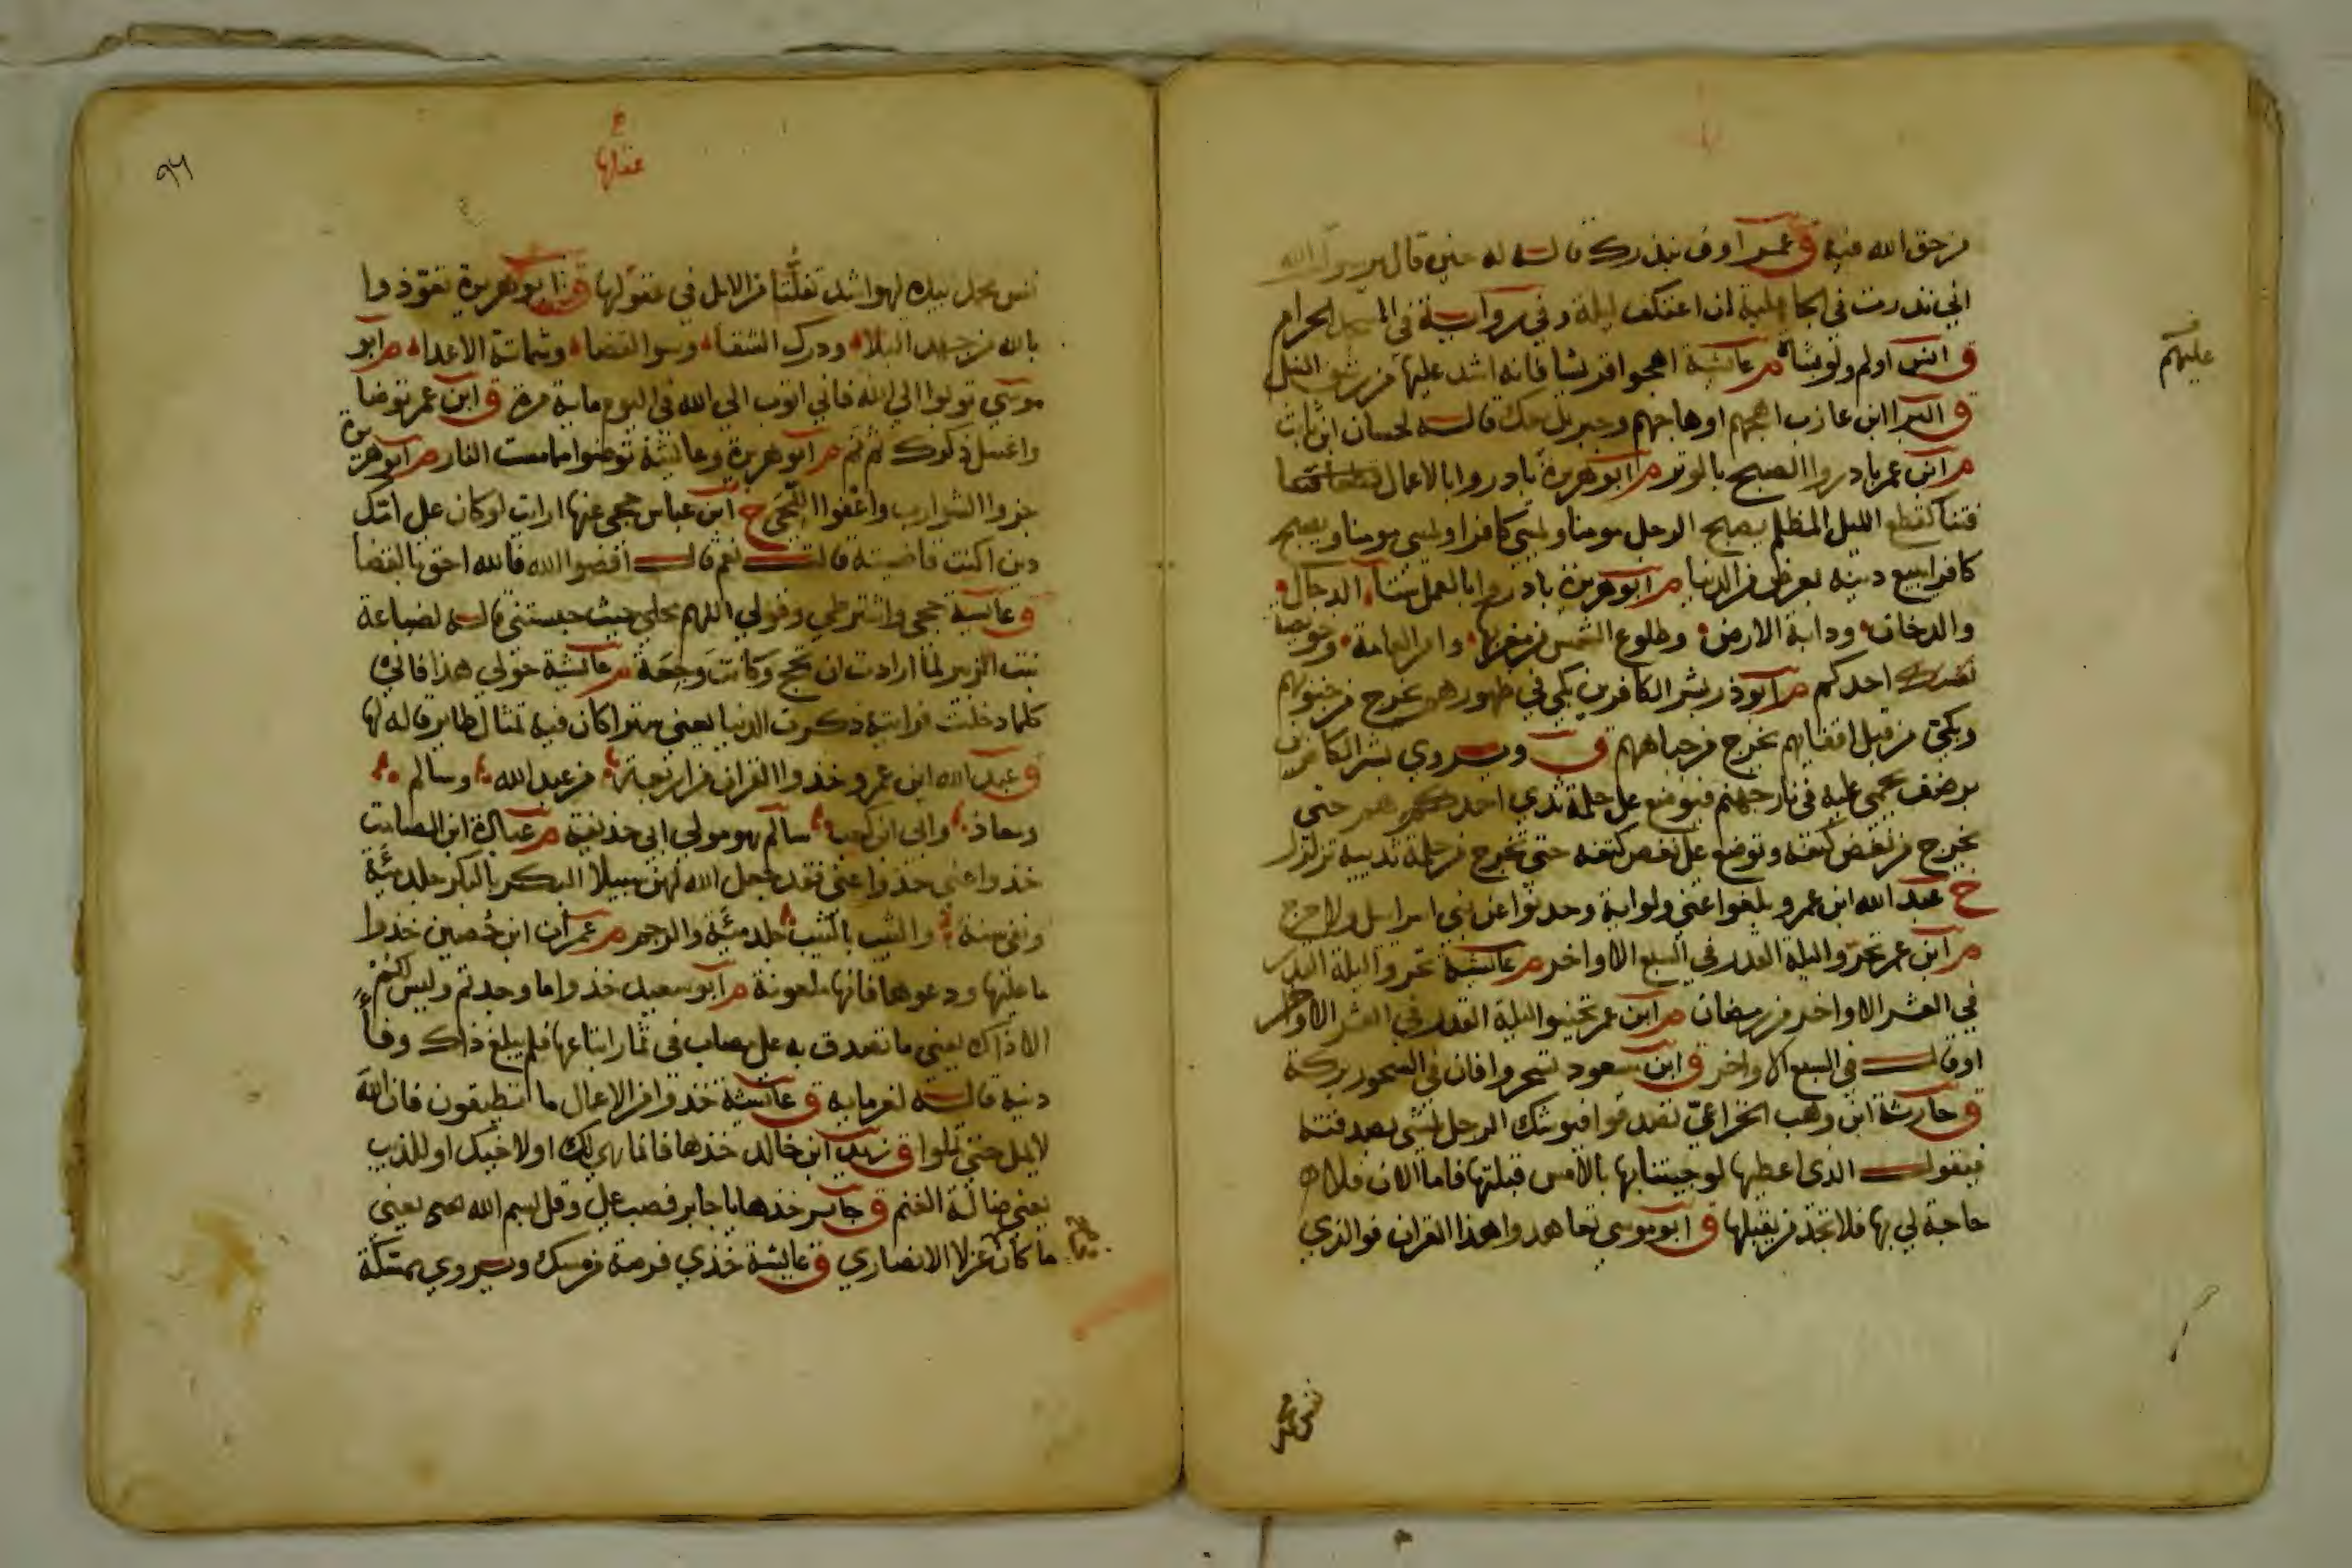 من حق الله فيه ق عمر اوف بنذرك قاله له حين قال يا رسول الله
اني نذرت في الجاهلية ان اعتكف ليلة وفي رواية في المسجد الحرام
ق انس اولم ولو بشاة م عائشة اهجوا قريشا فانه اشد عليها من رشق النبل
عليهم
ق البرا ابن عازب اهجهم او هاجهم وجبريل معك قاله لحسان ابن ثابت
م ابن عمر بادروا الصبح بالوتر م ابو هريرة بادروا بالاعمال
فتنا كقطع الليل المظلم يصبح الرجل مومنا ويمسي كافرا ويمسي مومنا ويصبح
كافرا يبيع دينه بعرض من الدنيا م ابو هريرة بادروا بالعمل ستا الدجال
والدخان ودابة الارض وطلوع الشمس من مغربها وامر العامة وخويصة
احدكم م ابو ذر بشر الكافرين بكي في ظهورهم يخرج من جنوبهم
وبكي من قبل اقفايهم يخرج من جباههم ق ويروي بشر الكافرين
برضف يحمي عليه في نار جهنم فيوضع على حلمة ثدي احدهم حتى
يخرج من نغض كتفه ويوضع على نغض كتفه حتى يخرج من حلمة ثدييه يتزلزل
خ عبد الله ابن عمرو بلغوا عني ولو اية وحدثوا عن بني اسرايل ولا حرج
م ابن عمر تحروا ليلة القدر في السبع الاواخر م عائشة تحروا ليلة القدر
في العشر الاواخر من رمضان م ابن عمر تحينوا ليلة القدر في العشر الاواخر
او قال في السبع الاواخر ق ابن مسعود تسحروا فان في السحور بركة
ق حارثة ابن وهب الخزاعي تصدقوا فيوشك الرجل يمشي بصدقته
فيقول الذي اعطيها لو جيتنا بها بالامس قبلتها فاما الان فلا
حاجة لي بها فلا يجد من يقبلها ق ابو موسى تعاهدوا هذا القران فوالذي
نفس محمد
٩٦
عقلها
نفس محمد بيده لهو اشد تفلتا من الابل في عقولها ق ابو هريرة تعوذوا
بالله من جهد البلاء ودرك الشقاء وسو القضاء وشماتة الاعداء م ابو
موسى توبوا الي الله فاني اتوب الي الله في اليوم ماية مرة ق ابن عمر توضا
واغسل ذكرك ثم نم م ابو هريرة وعائشة توضوا مما مست النار م ابو هريرة
جزوا الشوارب واعفوا اللحى خ ابن عباس حجي عنها ارايت لو كان على امك
دين اكنت قاضيته قالت نعم قال اقضوا الله فالله احق بالقضا
ق عائشة حجي واشترطي وقولي اللهم محلي حيث حبستني قاله لضباعة
بنت الزبير لما ارادت ان تحج وكانت وجعة م عائشة حولي هذا فاني
كلما دخلت فرايته ذكرت الدنيا يعني سترا كان فيه تمثال طاير قاله لها
ق عبد الله ابن عمرو خذوا القران من اربعة من عبد الله وسالم
ومعاذ وابي ابن كعب سالم هو مولي ابي حذيفة م عبادة ابن الصامت
خذوا عني خذوا عني فقد جعل الله لهن سبيلا البكر بالبكر جلد مئة
ونفي سنة والثيب بالثيب جلد مئة والرجم م عمران ابن حصين خذوا
ما عليها ودعوها فانها ملعونة م ابو سعيد خذوا ما وجدتم وليس لكم
الا ذاك يعني ما تصدق به على مصاب في ثمار ابتاعها فلم يبلغ ذلك وفا
دينه قاله لغرمايه ق عائشة خذوا من الاعمال ما تطيقون فان الله
لا يمل حتى تملوا ق زيد ابن خالد خذها فانما هي لك او لاخيك او للذيب
يعني ضالة الغنم ق جابر خذها يا جابر فصب علي وقل بسم الله يعني
ما كان في عزلا الانصاري ق عائشة خذي فرصة من مسك ويروي ممسكة